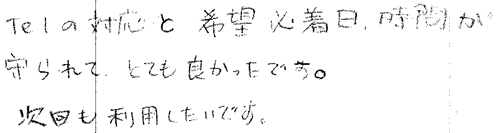 Telの対応と希望必着日、時間が
守られて、とても良かったです。
次回も利用したいです。